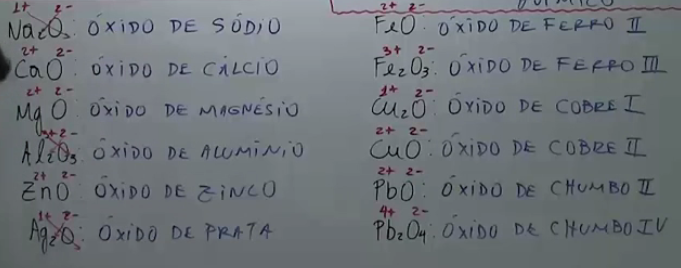 1+ 2-
Na₂O: ÓXIDO DE SÓDIO
2+ 2-
CaO: ÓXIDO DE CÁLCIO
2+ 2-
MgO: ÓXIDO DE MAGNÉSIO
3+ 2-
Al₂O₃: ÓXIDO DE ALUMÍNIO
2+ 2-
ZnO: ÓXIDO DE ZINCO
1+ 2-
Ag₂O: ÓXIDO DE PRATA
2+ 2-
FeO: ÓXIDO DE FERRO II
3+ 2-
Fe₂O₃: ÓXIDO DE FERRO III
1+ 2-
Cu₂O: ÓXIDO DE COBRE I
2+ 2-
CuO: ÓXIDO DE COBRE II
2+ 2-
PbO: ÓXIDO DE CHUMBO II
4+ 2-
Pb₂O₄: ÓXIDO DE CHUMBO IV